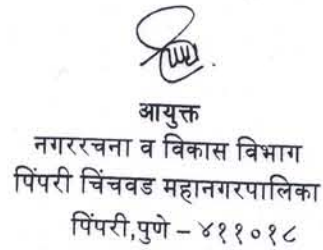 आयुक्त
नगररचना व विकास विभाग
पिंपरी चिंचवड महानगरपालिका
पिंपरी,पुणे – ४११०१८